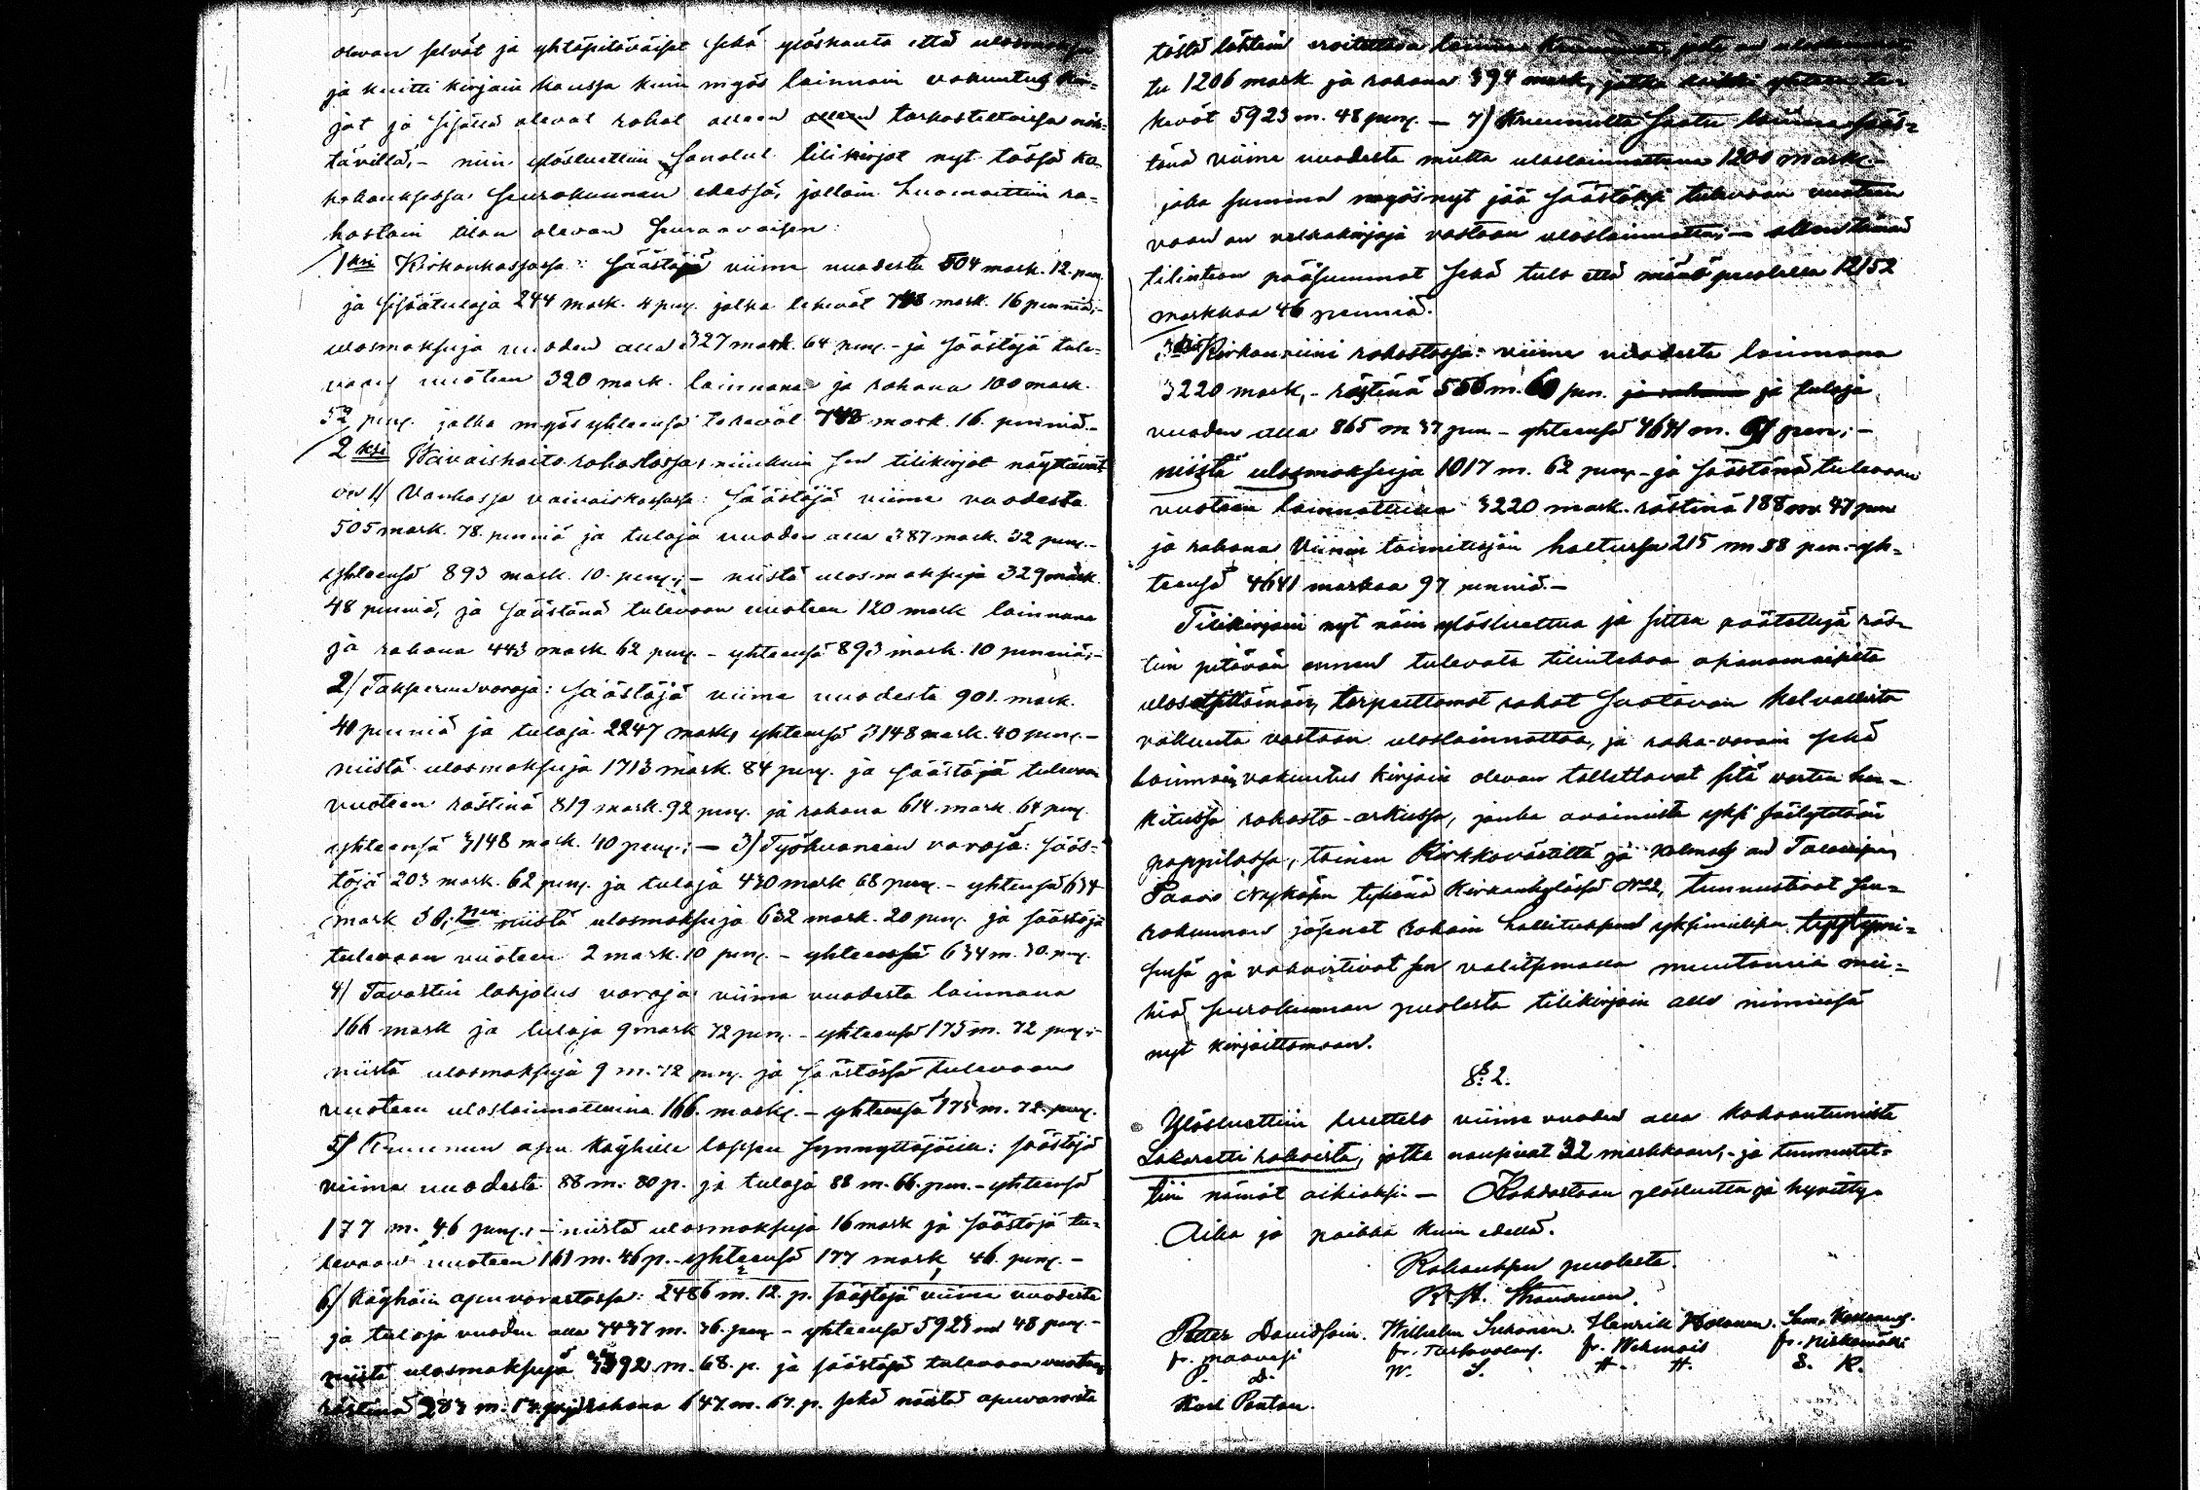 olevan selvät ja yhtäpitäväiset sekä ylöskanto että ulosmaksu
ja kuitti kirjain kanssa kuin myös lainnain vakuutus kir-
jat ja sisällä olevat rahat olleen tarkasteltaissa näh-
tävillä, – niin ylösluettiin sanotut tilikirjat nyt tässä ko-
kouksessa seurakunnan edessä, jolloin huomaittiin ra-
hastoin tilan olevan seuraavaisen:
1ksi Kirkonkassassa: säästöjä viime vuodesta 504 mark. 12. pen.
ja sisäätuloja 244 mark. 4 pen. jotka tekevät 748 mark. 16 penniä; –
ulosmaksuja vuoden alla 327 mark. 64 pen. – ja säästöjä tule-
vaan vuoteen 320 mark. lainnana ja rahana 100 mark.
52 pen. jotka myös yhteensä tekevät 748 mark. 16. penniä. –
2ksi Waivaishoito rahastossa, niinkuin sen tilikirjat näyttävät
on 1/ Vanhassa vaivaiskassassa: säästöjä viime vuodesta
505 mark. 78. penniä ja tuloja vuoden alla 387 mark. 32 pen. –
yhteensä 893 mark. 10. pen.; – niistä ulosmaksuja 329 mark.
48 penniä, ja säästönä tulevaan vuoteen 120 mark lainnana
ja rahana 443 mark 62 pen. – yhteensä 893 mark. 10 penniä; –
2/ Taksvärkki varoja: säästöjä viime vuodesta 901. mark.
40 penniä ja tuloja 2247 mark, yhteensä 3148 mark. 40 pen. –
niistä ulosmaksuja 1713 mark. 84 pen. ja säästöjä tulevaan
vuoteen rästinä 819 mark. 92 pen. ja rahana 614. mark. 64 pen.
yhteensä 3148 mark. 40 pen.; – 3/ Työhuoneen varoja: sääs-
töjä 203 mark. 62 pen. ja tuloja 430 mark 68 pen. – yhteensä 634
mark 30, pen niistä ulosmaksuja 632 mark. 20 pen. ja säästöjä
tulevaan vuoteen 2 mark. 10 pen. – yhteensä 634 m. 30 pen.
4/ Tavastin lahjotus varoja viime vuodesta lainnana
166 mark ja tuloja 9 mark 72 pen. – yhteensä 175 m. 72 pen; –
niistä ulosmaksuja 9 m. 72 pen. ja säästössä tulevaan
vuoteen uloslainnattuina 166. mark. – yhteensä 175 m. 72 pen.
5/ Kruunun apu köyhille lapsen synnyttäjöille: säästöjä
viime vuodesta 88 m. 80 p. ja tuloja 88 m. 66. pen. – yhteensä
177 m. 46 pen., – niistä ulosmaksuja 16 mark ja säästöjä tu-
levaan vuoteen 161 m. 46 p. – yhteensä 177 mark, 46 pen. –
6/ Köyhäin apuvarastossa: 2486 m. 12. p. säästöjä viime vuodesta
ja tuloja vuoden alla 3437 m. 36. pen – yhteensä 5923 m 48 pen –
niistä ulosmaksuja 3392 m. 68. p. ja säästöjä tulevaan vuoteen
rästinä 283 m. rahana 647. m. 67. p. sekä näistä apuvaroista
tästä lähtein eroitettava
tu 1206 mark ja rahana 394 mark, jotka kaikki yhteen te-
kevät 5923 m. 48 pen. – 7/ Kruunulta saatu lainna sääs-
tönä viime vuodesta mutta uloslainnattuna 1200 mark. –
joka summa myös nyt jää säästöksi tulevaan vuoteen
vaan on velkakirjoja vastaan uloslainnattu; – ollen tämän
tilinteon pääsummat sekä tulo että meno puolella 12152
markkaa 46 penniä.
3ksi Kirkonviini rahastossa: viime vuodesta lainnana
3220 mark, – rästinä 556 m. 60 pen. ja rahana ja tuloja
vuoden alla 865 m 37 pen – yhteensä 4641 m. 97 pen; –
niistä ulosmaksuja 1017 m. 62 pen – ja säästönä tulevaan
vuoteen lainnattuna 3220 mark. rästinä 188 m 47 pen
ja rahana Viinin toimitusjan hallussa 215 m 88 pen. – yh-
teensä 4641 markaa 97 penniä. –
Tilikirjain nyt näin ylösluettua ja sitten päätettyä räs-
tiin pitävän ennen tulevata tilintekoa
tarpeettomat rahat saatavan kelvollista
vakuutta vastaan uloslainnattaa, ja raha-varain sekä
lainnain vakuutus kirjain olevan talletettavat sitä varten han-
kitussa rahasto-arkussa, jonka avaimista yksi säilytetään
pappilassa, toinen Kirkkovärtillä ja kolmas on Talonpoja
Paavo Nyköpin tykönä Kirkonkylässä No 2, tunnustivat seu-
rakunnan jäsenet rahain hallituksen yksimielisen tyytyväi-
sensä ja vahvistivat sen valitsemalla muutamia mie-
hiä seurakunnan puolesta tilikirjain alle nimiensä
nyt kirjoittamaan.
§ 2.
Ylösluettiin luettelo viime vuoden alla kokoontuneista
Lasaretti rahoista, jotka nousivat 32 markkaan, – ja tunnustet-
tiin nämät oikioksi. – Kohdastaan ylösluettu ja hyvitty.
Aika ja paikka kuin edellä.
Kokouksen puolesta.
K. A. Strandman.
Petter Davidsain. Wilhelm Suhonen. Henrik Holonen. Samu
fr. Maavesi fr. fr. Wehmais fr. Niskamäki
P. D. W. S. H. H. S. K.
Karl Pontan.